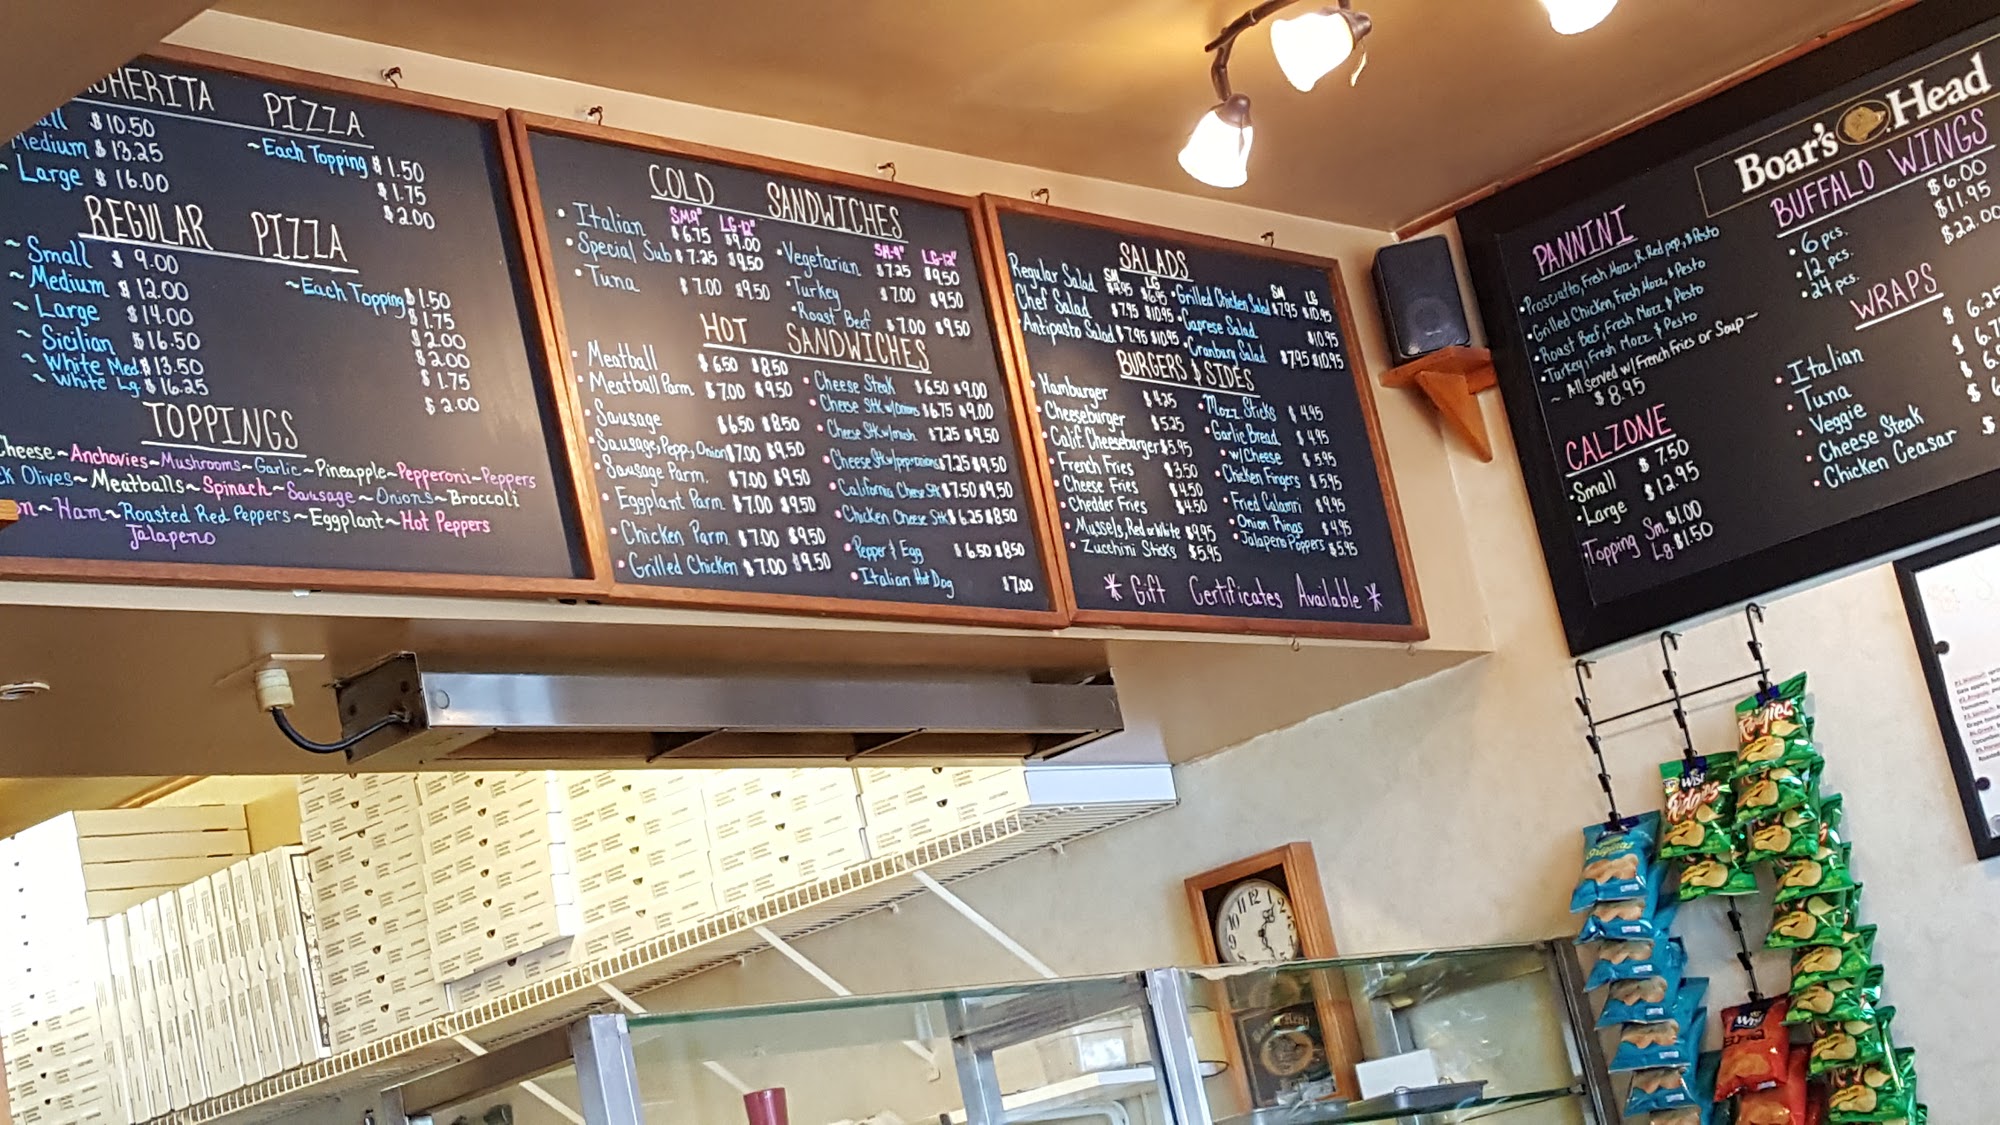 PIZZA
$10.50
Medium $13.25
~ Large $16.00
~Each Topping $1.50
$1.75
$2.00
REGULAR PIZZA
~ Small $9.00
~ Medium $12.00
~ Large $14.00
~ Sicilian $16.50
~ White Med. $13.50
~ White Lg. $16.25
~Each Topping $1.50
$1.75
$2.00
$2.00
$1.75
$2.00
TOPPINGS
Cheese~Anchovies~Mushrooms~Garlic~Pineapple~Pepperoni~Peppers
Olives~Meatballs~Spinach~Sausage~Onions~Broccoli
~Ham~Roasted Red Peppers~Eggplant~Hot Peppers
Jalapeno
COLD SANDWICHES
SM-9" LG-12"
• Italian $6.75 $9.00
• Special Sub $7.25 $9.50
• Tuna $7.00 $9.50
SM-9" LG-12"
• Vegetarian $7.25 $9.50
• Turkey $7.00 $9.50
• Roast Beef $7.00 $9.50
HOT SANDWICHES
• Meatball $6.50 $8.50
• Meatball Parm $7.00 $9.50
• Sausage $6.50 $8.50
• Sausage, Pepp, Onion $7.00 $9.50
• Sausage Parm. $7.00 $9.50
• Eggplant Parm $7.00 $9.50
• Chicken Parm $7.00 $9.50
• Grilled Chicken $7.00 $9.50
• Cheese Steak $6.50 $9.00
• Cheese Stk w/onions $6.75 $9.00
• Cheese Stk w/mush $7.25 $9.50
• Cheese Stk w/pepp-onions $7.25 $9.50
• California Cheese Stk $7.50 $9.50
• Chicken Cheese Stk $6.25 $8.50
• Pepper & Egg $6.50 $8.50
• Italian Hot Dog $7.00
SALADS
SM LG
Regular Salad $4.95 $6.95
Chef Salad $7.95 $10.95
• Antipasto Salad $7.95 $10.95
SM LG
• Grilled Chicken Salad $7.95 $10.95
• Caprese Salad $10.95
• Cranbury Salad $7.95 $10.95
BURGERS & SIDES
• Hamburger $4.25
• Cheeseburger $5.25
• Calif. Cheeseburger $5.95
• French Fries $3.50
• Cheese Fries $4.50
• Chedder Fries $4.50
• Mussels, Red or White $9.95
• Zucchini Sticks $5.95
• Mozz Sticks $4.95
• Garlic Bread $4.95
• w/Cheese $5.95
• Chicken Fingers $5.95
• Fried Calamri $9.95
• Onion Rings $4.95
• Jalapeno Poppers $5.95
* Gift Certificates Available *
Boar's Head
PANNINI
• Prosciutto, Fresh Mozz, R. Red pep, & Pesto
• Grilled Chicken, Fresh Mozz, & Pesto
• Roast Beef, Fresh Mozz & Pesto
• Turkey, Fresh Mozz & Pesto
~ All served w/French Fries or Soup ~
$8.95
CALZONE
• Small $7.50
• Large $12.95
Topping Sm. $1.00
Lg $1.50
BUFFALO WINGS
• 6 pcs. $6.00
• 12 pcs. $11.95
• 24 pcs. $22.00
WRAPS
• Italian
• Tuna
• Veggie
• Cheese Steak
• Chicken Ceasar
Ridgies
WISE
Ridgies
Original
WISE
12
11